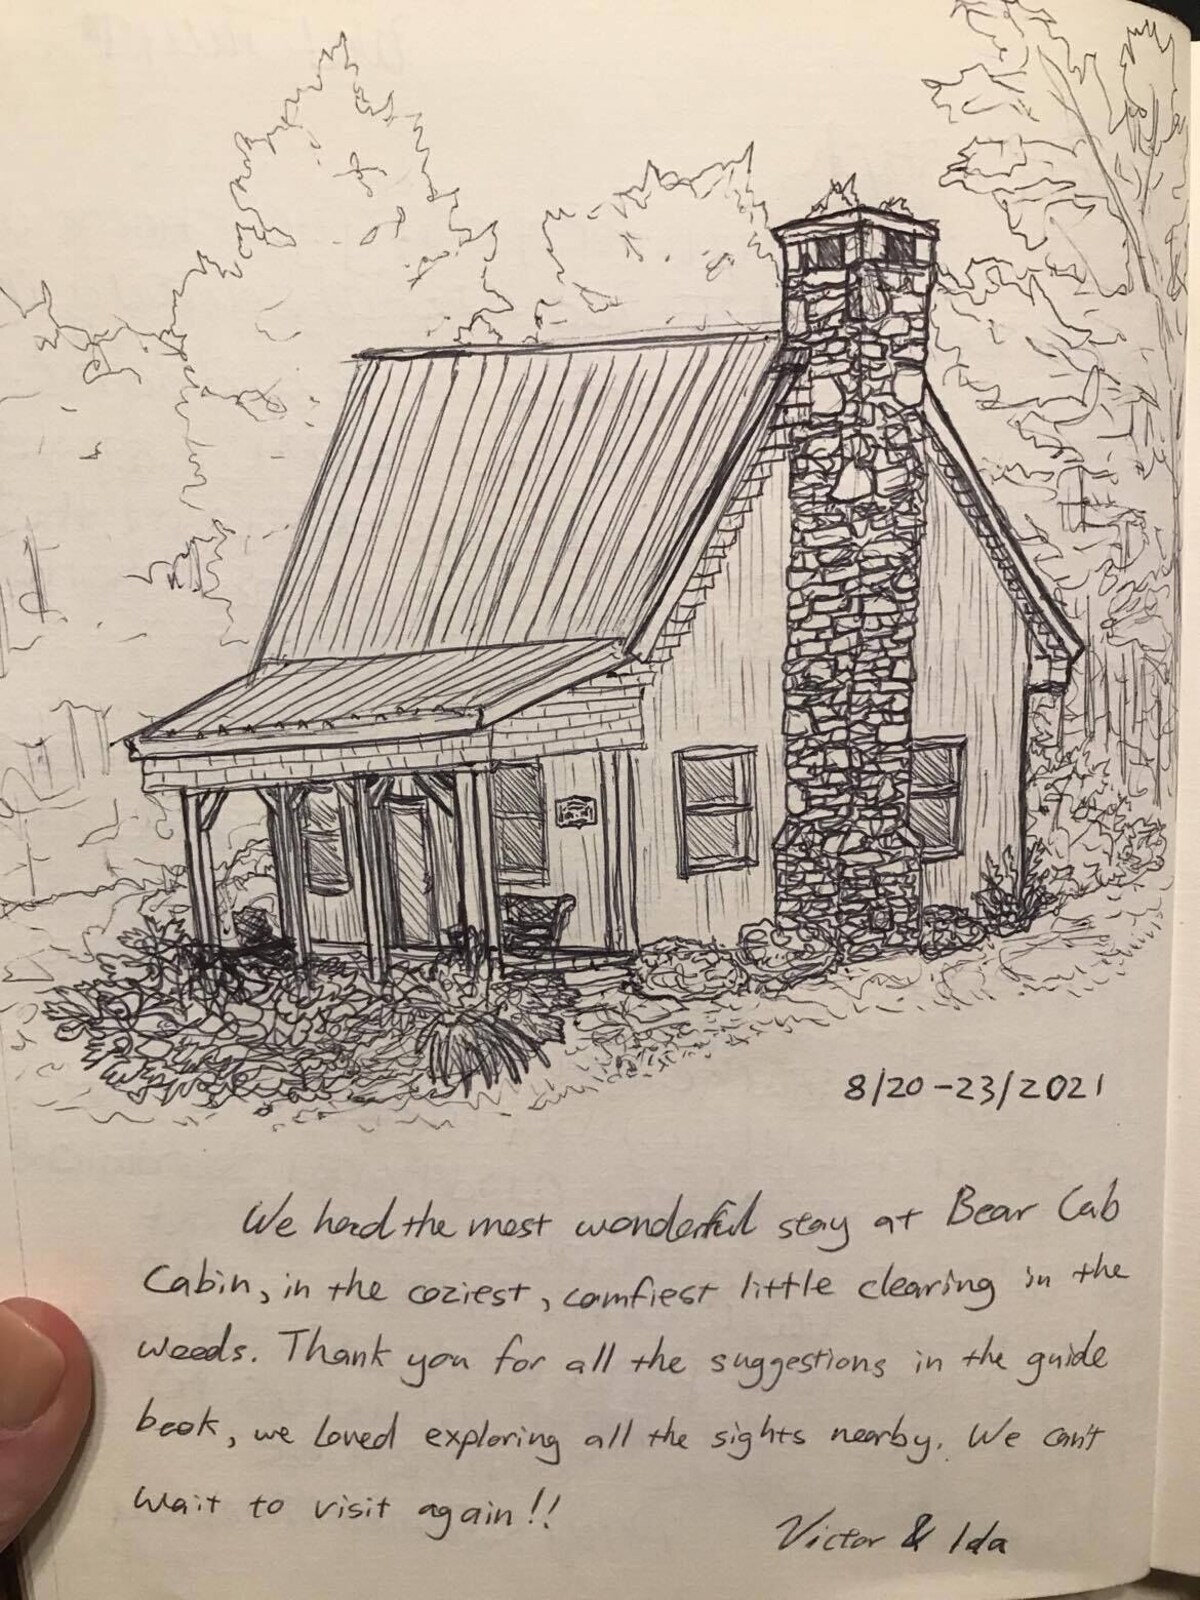 8/20-23/2021
We had the most wonderful stay at Bear Cab
Cabin, in the coziest, comfiest little clearing in the
woods. Thank you for all the suggestions in the guide
book, we loved exploring all the sights nearby. We can't
wait to visit again!!
Victor & Ida